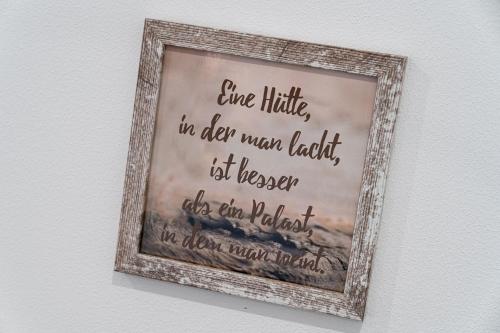 Eine Hütte,
in der man lacht,
ist besser
als ein Palast,
in dem man weint.